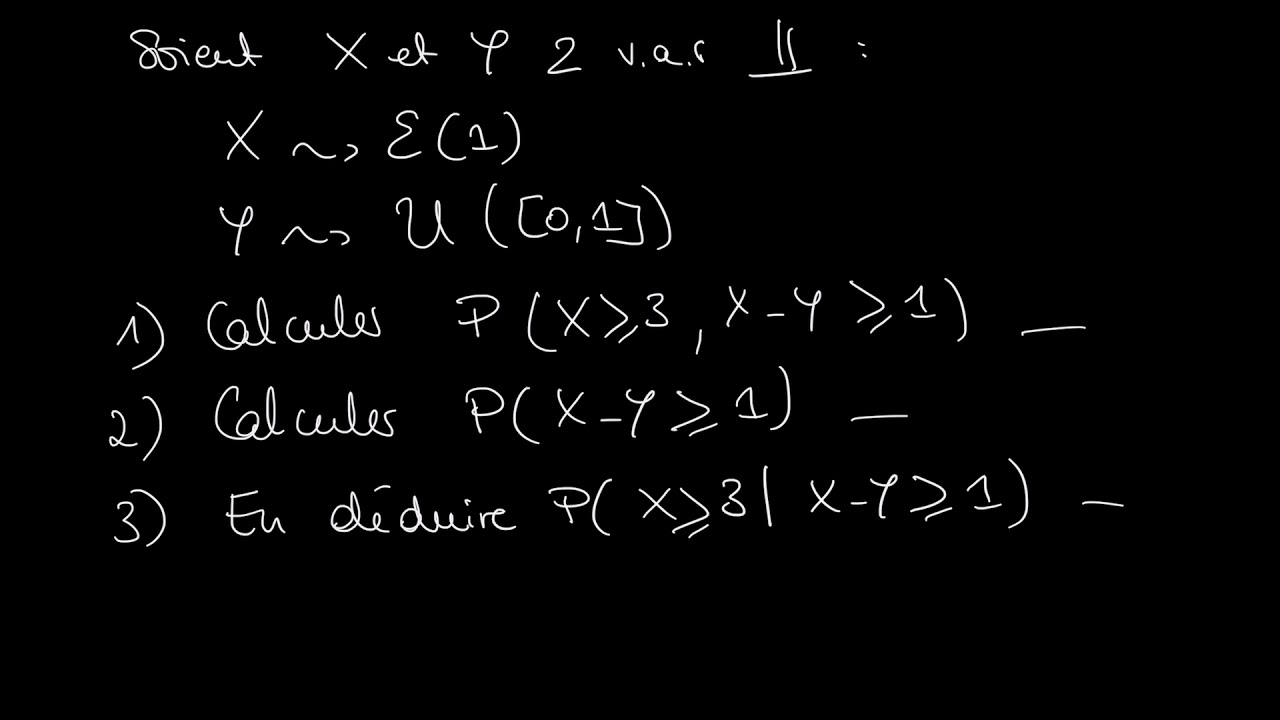 Soient X et Y 2 v.a.r ⫫ :
X ⤳ Ɛ(1)
Y ⤳ U ([0,1])
1) Calculer P(X⩾3, X-Y⩾1) —
2) Calculer P(X-Y⩾1) —
3) En déduire P(X⩾3| X-Y⩾1) —